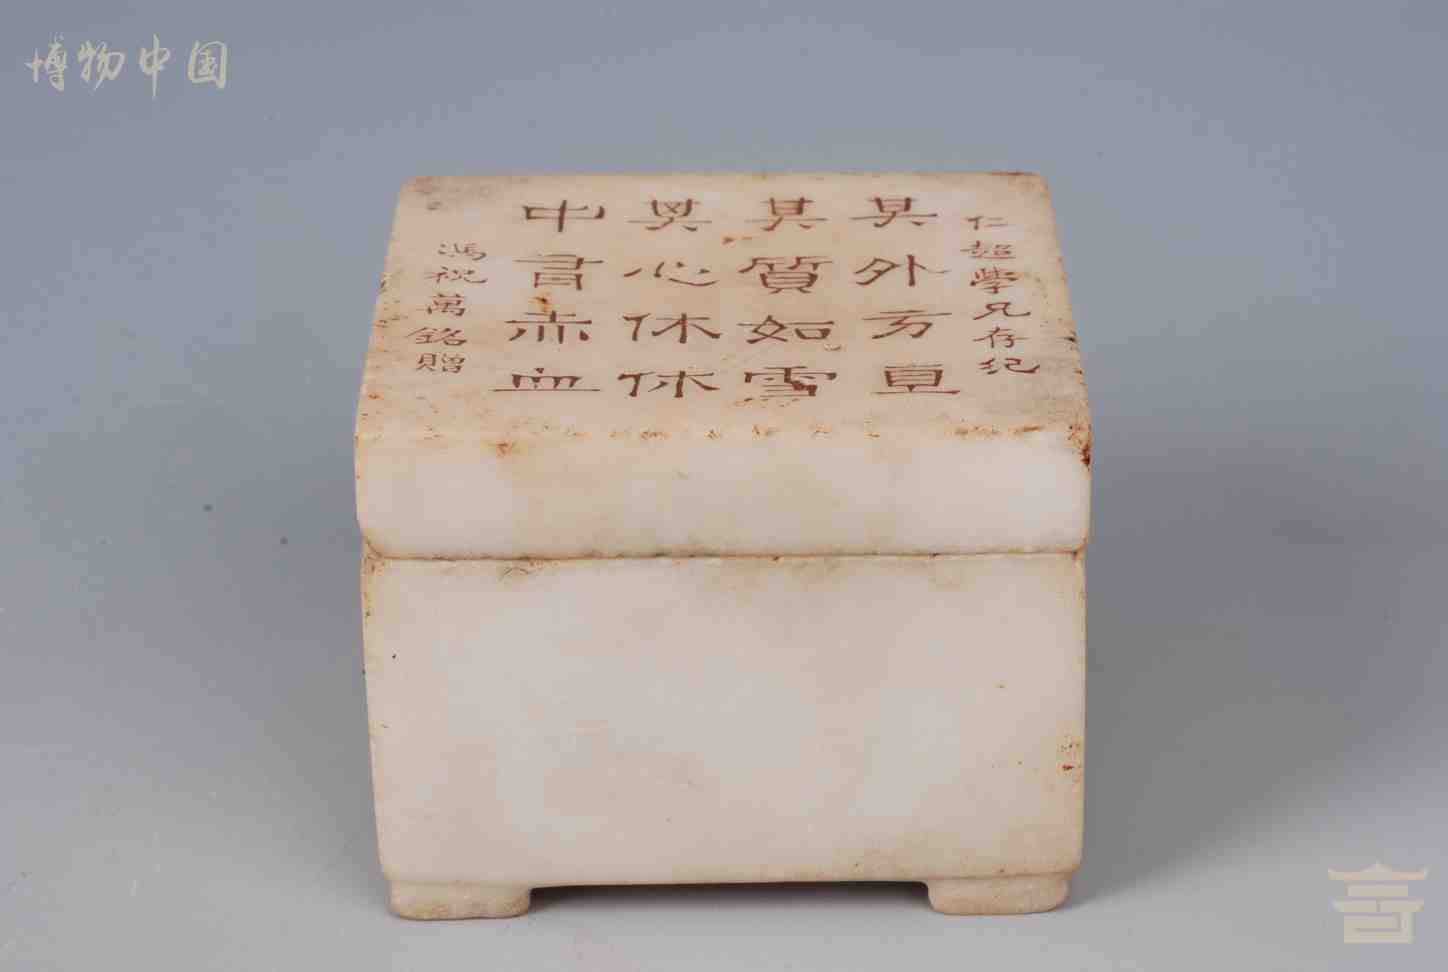 博物中国
仁超學兄存纪
其外方直
其質如雪
其心休休
中書赤血
馮祝萬銘贈